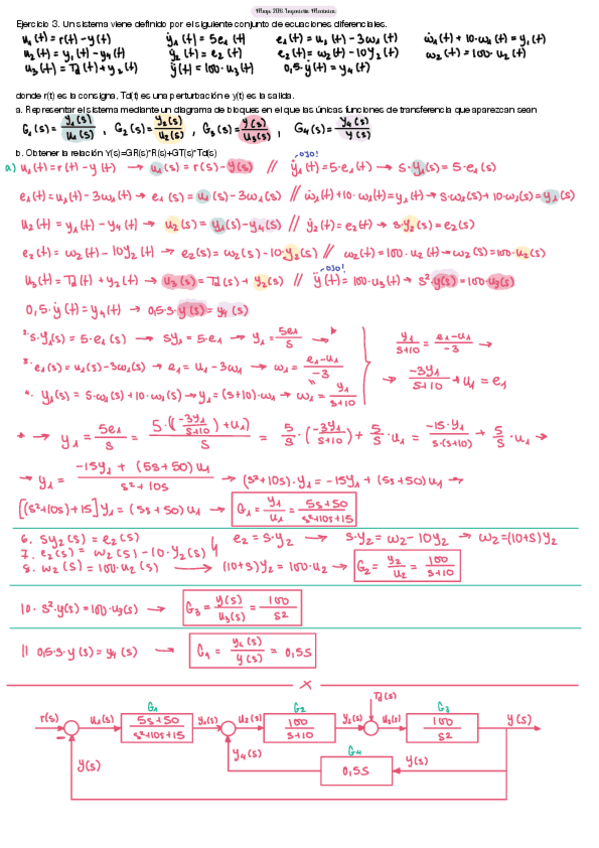 Mayo 2016 Ingeniería Mecánica
Ejercicio 3. Un sistema viene definido por el siguiente conjunto de ecuaciones diferenciales.
u₁(t) = r(t) - y(t) ẏ₁(t) = 5e₁(t) e₁(t) = u₁(t) - 3w₁(t) ẇ₁(t) + 10·w₁(t) = y₁(t)
u₂(t) = y₁(t) - y₄(t) ẏ₂(t) = e₂(t) e₂(t) = w₂(t) - 10y₂(t) w₂(t) = 100·u₂(t)
u₃(t) = Td(t) + y₂(t) ÿ(t) = 100·u₃(t) 0,5·ẏ(t) = y₄(t)
donde r(t) es la consigna, Td(t) es una perturbación e y(t) es la salida.
a. Representar el sistema mediante un diagrama de bloques en el que las únicas funciones de transferencia que aparezcan sean
G₁(s) = y₁(s)/u₁(s) , G₂(s) = y₂(s)/u₂(s) , G₃(s) = y(s)/u₃(s) , G₄(s) = y₄(s)/y(s)
b. Obtener la relación Y(s)=GR(s)*R(s)+GT(s)*Td(s)
a) u₁(t) = r(t) - y(t) → u₁(s) = r(s) - y(s) // ¡OJO! ẏ₁(t) = 5·e₁(t) → s·y₁(s) = 5·e₁(s)
e₁(t) = u₁(t) - 3w₁(t) → e₁(s) = u₁(s) - 3w₁(s) // ẇ₁(t) + 10·w₁(t) = y₁(t) → s·w₁(s) + 10·w₁(s) = y₁(s)
u₂(t) = y₁(t) - y₄(t) → u₂(s) = y₁(s) - y₄(s) // ẏ₂(t) = e₂(t) → s·y₂(s) = e₂(s)
e₂(t) = w₂(t) - 10y₂(t) → e₂(s) = w₂(s) - 10·y₂(s) // w₂(t) = 100·u₂(t) → w₂(s) = 100·u₂(s)
u₃(t) = Td(t) + y₂(t) → u₃(s) = Td(s) + y₂(s) // ¡OJO! ÿ(t) = 100·u₃(t) → s²·y(s) = 100·u₃(s)
0,5·ẏ(t) = y₄(t) → 0,5·s·y(s) = y₄(s)
2. s·y₁(s) = 5·e₁(s) → sy₁ = 5·e₁ → y₁ = 5e₁/s
3. e₁(s) = u₁(s) - 3w₁(s) → e₁ = u₁ - 3w₁ → w₁ = (e₁-u₁)/-3
4. y₁(s) = s·w₁(s) + 10·w₁(s) → y₁ = (s+10)·w₁ → w₁ = y₁/(s+10)
y₁/(s+10) = (e₁-u₁)/-3 →
→ -3y₁/(s+10) + u₁ = e₁
* → y₁ = 5e₁/s = 5·((-3y₁/(s+10)) + u₁)/s = 5/s·(-3y₁/(s+10)) + 5/s·u₁ = -15·y₁/(s·(s+10)) + 5/s·u₁ →
→ y₁ = (-15y₁ + (5s+50)u₁)/(s²+10s) → (s²+10s)·y₁ = -15y₁ + (5s+50)u₁ →
[(s²+10s)+15]y₁ = (5s+50)u₁ → G₁ = y₁/u₁ = (5s+50)/(s²+10s+15)
6. sy₂(s) = e₂(s)
7. e₂(s) = w₂(s) - 10·y₂(s) e₂ = s·y₂ → s·y₂ = w₂ - 10y₂ → w₂ = (10+s)y₂
8. w₂(s) = 100·u₂(s) → (10+s)y₂ = 100·u₂ → G₂ = y₂/u₂ = 100/(s+10)
10. s²·y(s) = 100·u₃(s) → G₃ = y(s)/u₃(s) = 100/s²
11 0,5·s·y(s) = y₄(s) → G₄ = y₄(s)/y(s) = 0,5s
x
Td(s)
G₁ G₂ G₃
r(s) u₁(s) (5s+50)/(s²+10s+15) y₁(s) u₂(s) 100/(s+10) y₂(s) u₃(s) 100/s² y(s)
-
G₄
y₄(s) 0,5s y(s)
y(s)